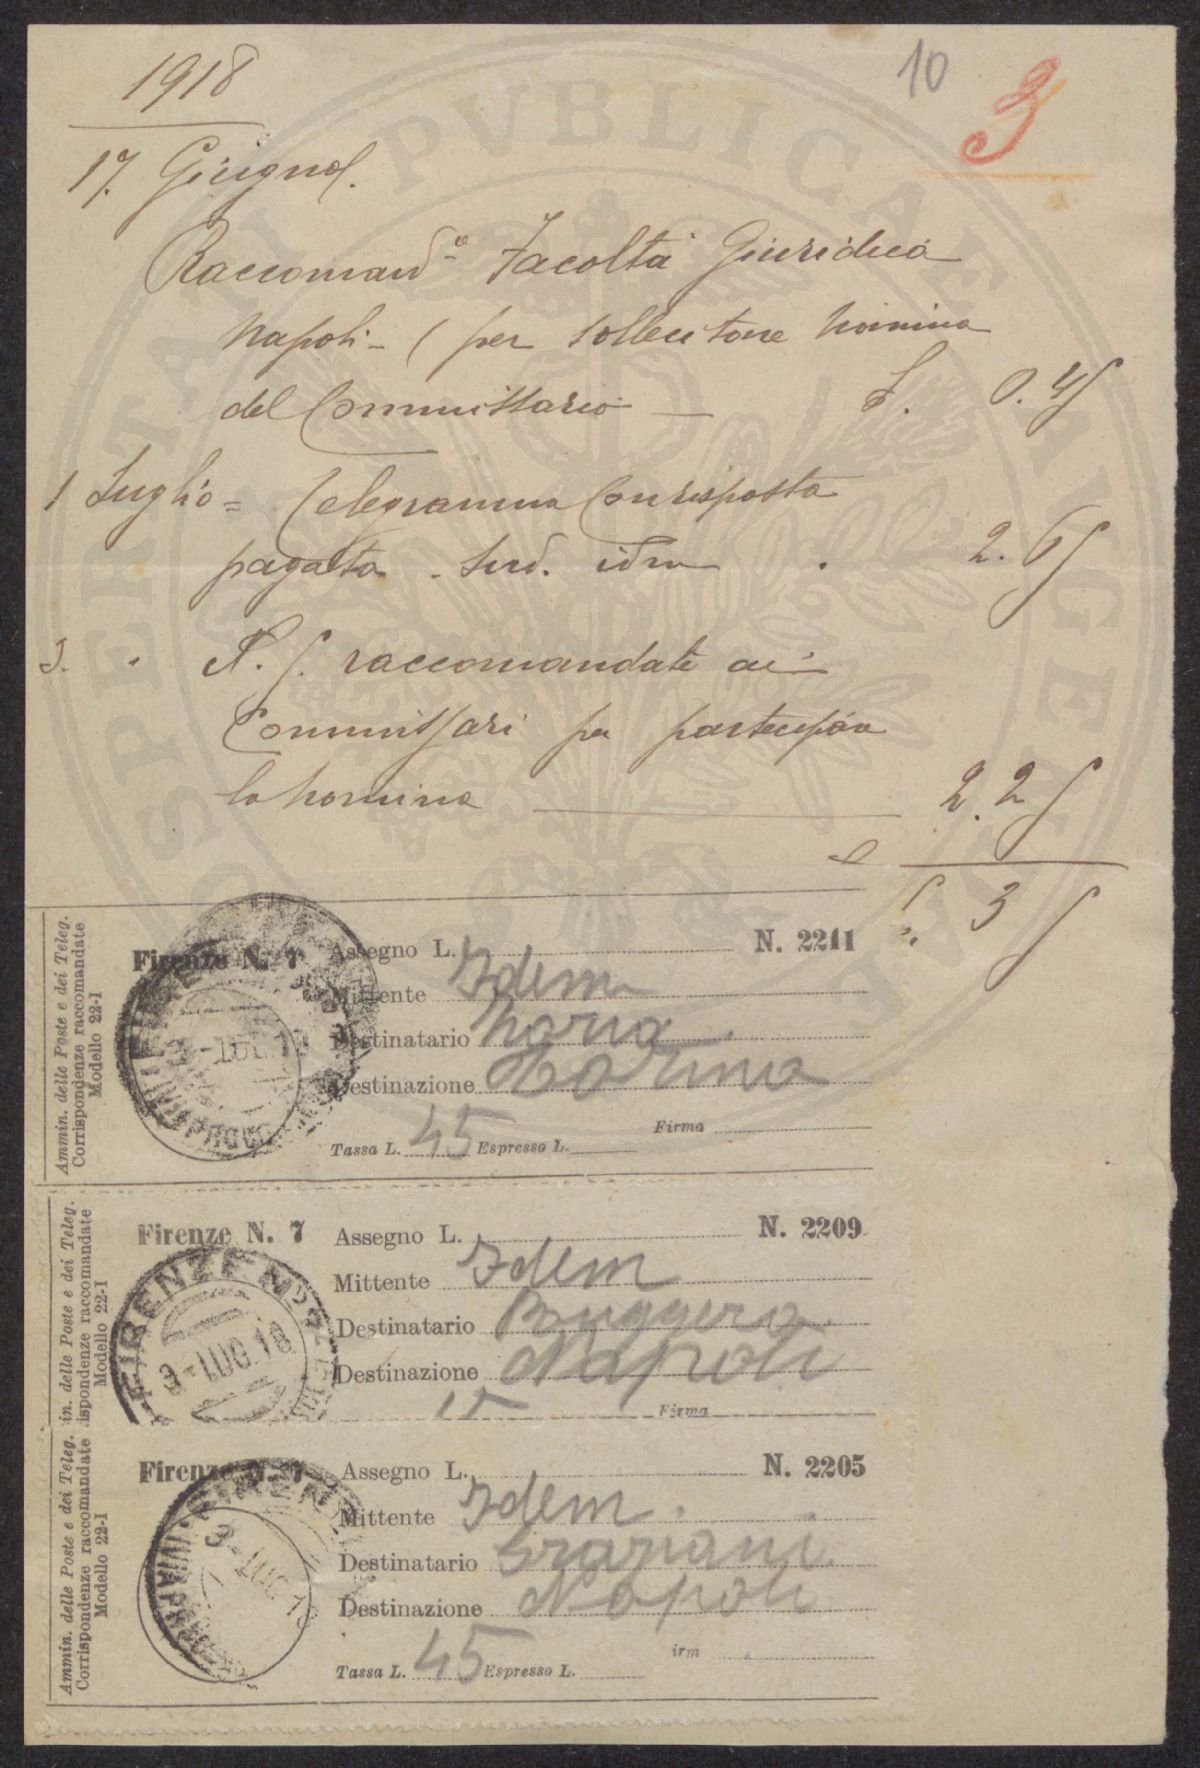 10
3
1918
17. Giugno.
Raccomand.a Facoltà Giuridica
Napoli - ( per sollecitare nomina
del Commissario — £. 0.45
1 Luglio = Telegramma con risposta
pagata. Sud. idem . 2.65
3. " N. 5 raccomandate ai
Commissari per partecipare
la nomina 2.25
£. 5.35
Ammin. delle Poste e dei Teleg.
Corrispondenze raccomandate
Modello 22-I
Firenze N. 7 Assegno L. N. 2211
Mittente Idem
Destinatario
Destinazione
Tassa L. 45 Espresso L. Firma
3-LUG.18
in. delle Poste e dei Teleg.
ispondenze raccomandate
Modello 22-I
Firenze N. 7 Assegno L. N. 2209
Mittente Idem
Destinatario Ruggero
Destinazione Napoli
Firma
FIRENZE No 7
3-LUG.18
Ammin. delle Poste e dei Teleg.
Corrispondenze raccomandate
Modello 22-I
Firenze N. 7 Assegno L. N. 2205
Mittente Idem
Destinatario Graziani
Destinazione Napoli
irm
Tassa L. 45 Espresso L.
3-LUG.18